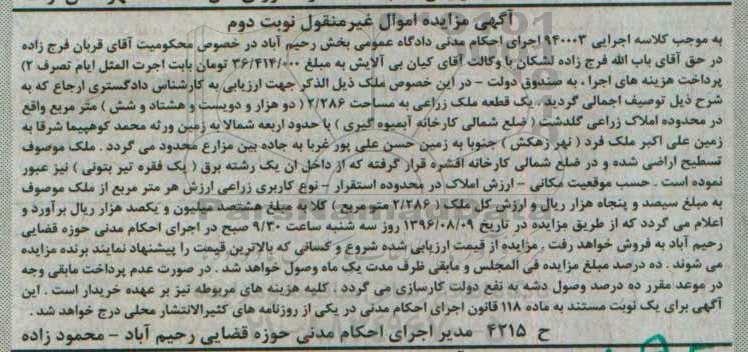 آگهی مزایده اموال غیرمنقول نوبت دوم
به موجب کلاسه اجرایی ۹۴۰۰۰۳ اجرای احکام مدنی دادگاه عمومی بخش رحیم آباد در خصوص محکومیت آقای قربان فرج زاده
در حق آقای باب الله فرج زاده لشکان با وکالت آقای کیان بی آلایش به مبلغ ۳۶/۴۱۴/۰۰۰ تومان بابت اجرت المثل ایام تصرف ۲)
پرداخت هزینه های اجرا ، به صندوق دولت – در این خصوص ملک ذیل الذکر جهت ارزیابی به کارشناس دادگستری ارجاع که به
شرح ذیل توصیف اجمالی گردید . یک قطعه ملک زراعی به مساحت ۲/۲۸۶ ( دو هزار و دویست و هشتاد و شش ) متر مربع واقع
در محدوده املاک زراعی گلدشت ( ضلع شمالی کارخانه آبمیوه گیری ) با حدود اربعه شمالا به زمین ورثه محمد کوهپیما شرقا به
زمین علی اکبر ملک فرد ( نهر زهکش ) جنوبا به زمین حسن علی پور غربا به جاده بین مزارع محدود می گردد . ملک موصوف
تسطیح اراضی شده و در ضلع شمالی کارخانه افشره قرار گرفته که از داخل ان یک رشته برق ( یک فقره تیر بتونی ) نیز عبور
نموده است . حسب موقعیت مکانی – ارزش املاک در محدوده استقرار – نوع کاربری زراعی ارزش هر متر مربع از ملک موصوف
به مبلغ سیصد و پنجاه هزار ریال و ارزش کل ملک ( ۲/۲۸۶ متر مربع ) کلا به مبلغ هشتصد میلیون و یکصد هزار ریال برآورد و
اعلام می گردد که از طریق مزایده در تاریخ ۱۳۹۶/۰۸/۰۹ روز سه شنبه ساعت ۹/۳۰ صبح در اجرای احکام مدنی حوزه قضایی
رحیم آباد به فروش خواهد رفت . مزایده از قیمت ارزیابی شده شروع و کسانی که بالاترین قیمت را پیشنهاد نمایند برنده مزایده
می شوند . ده درصد مبلغ مزایده فی المجلس و مابقی ظرف مدت یک ماه وصول خواهد شد . در صورت عدم پرداخت مابقی وجه
در موعد مقرر ده درصد وصول شده به نفع دولت کارسازی می گردد . کلیه هزینه های مربوطه نیز بر عهده خریدار است . این
آگهی برای یک نوبت مستند به ماده ۱۱۸ قانون اجرای احکام مدنی در یکی از روزنامه های کثیرالانتشار محلی درج خواهد شد .
ح ۴۲۱۵ مدیر اجرای احکام مدنی حوزه قضایی رحیم آباد – محمود زاده